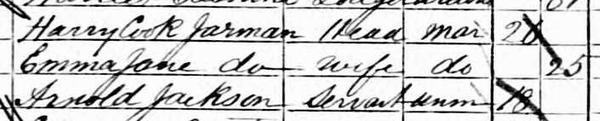 Harry Cook Jarman Head Mar 26
Emma Jane do wife do 25
Arnold Jackson Servant unm 18